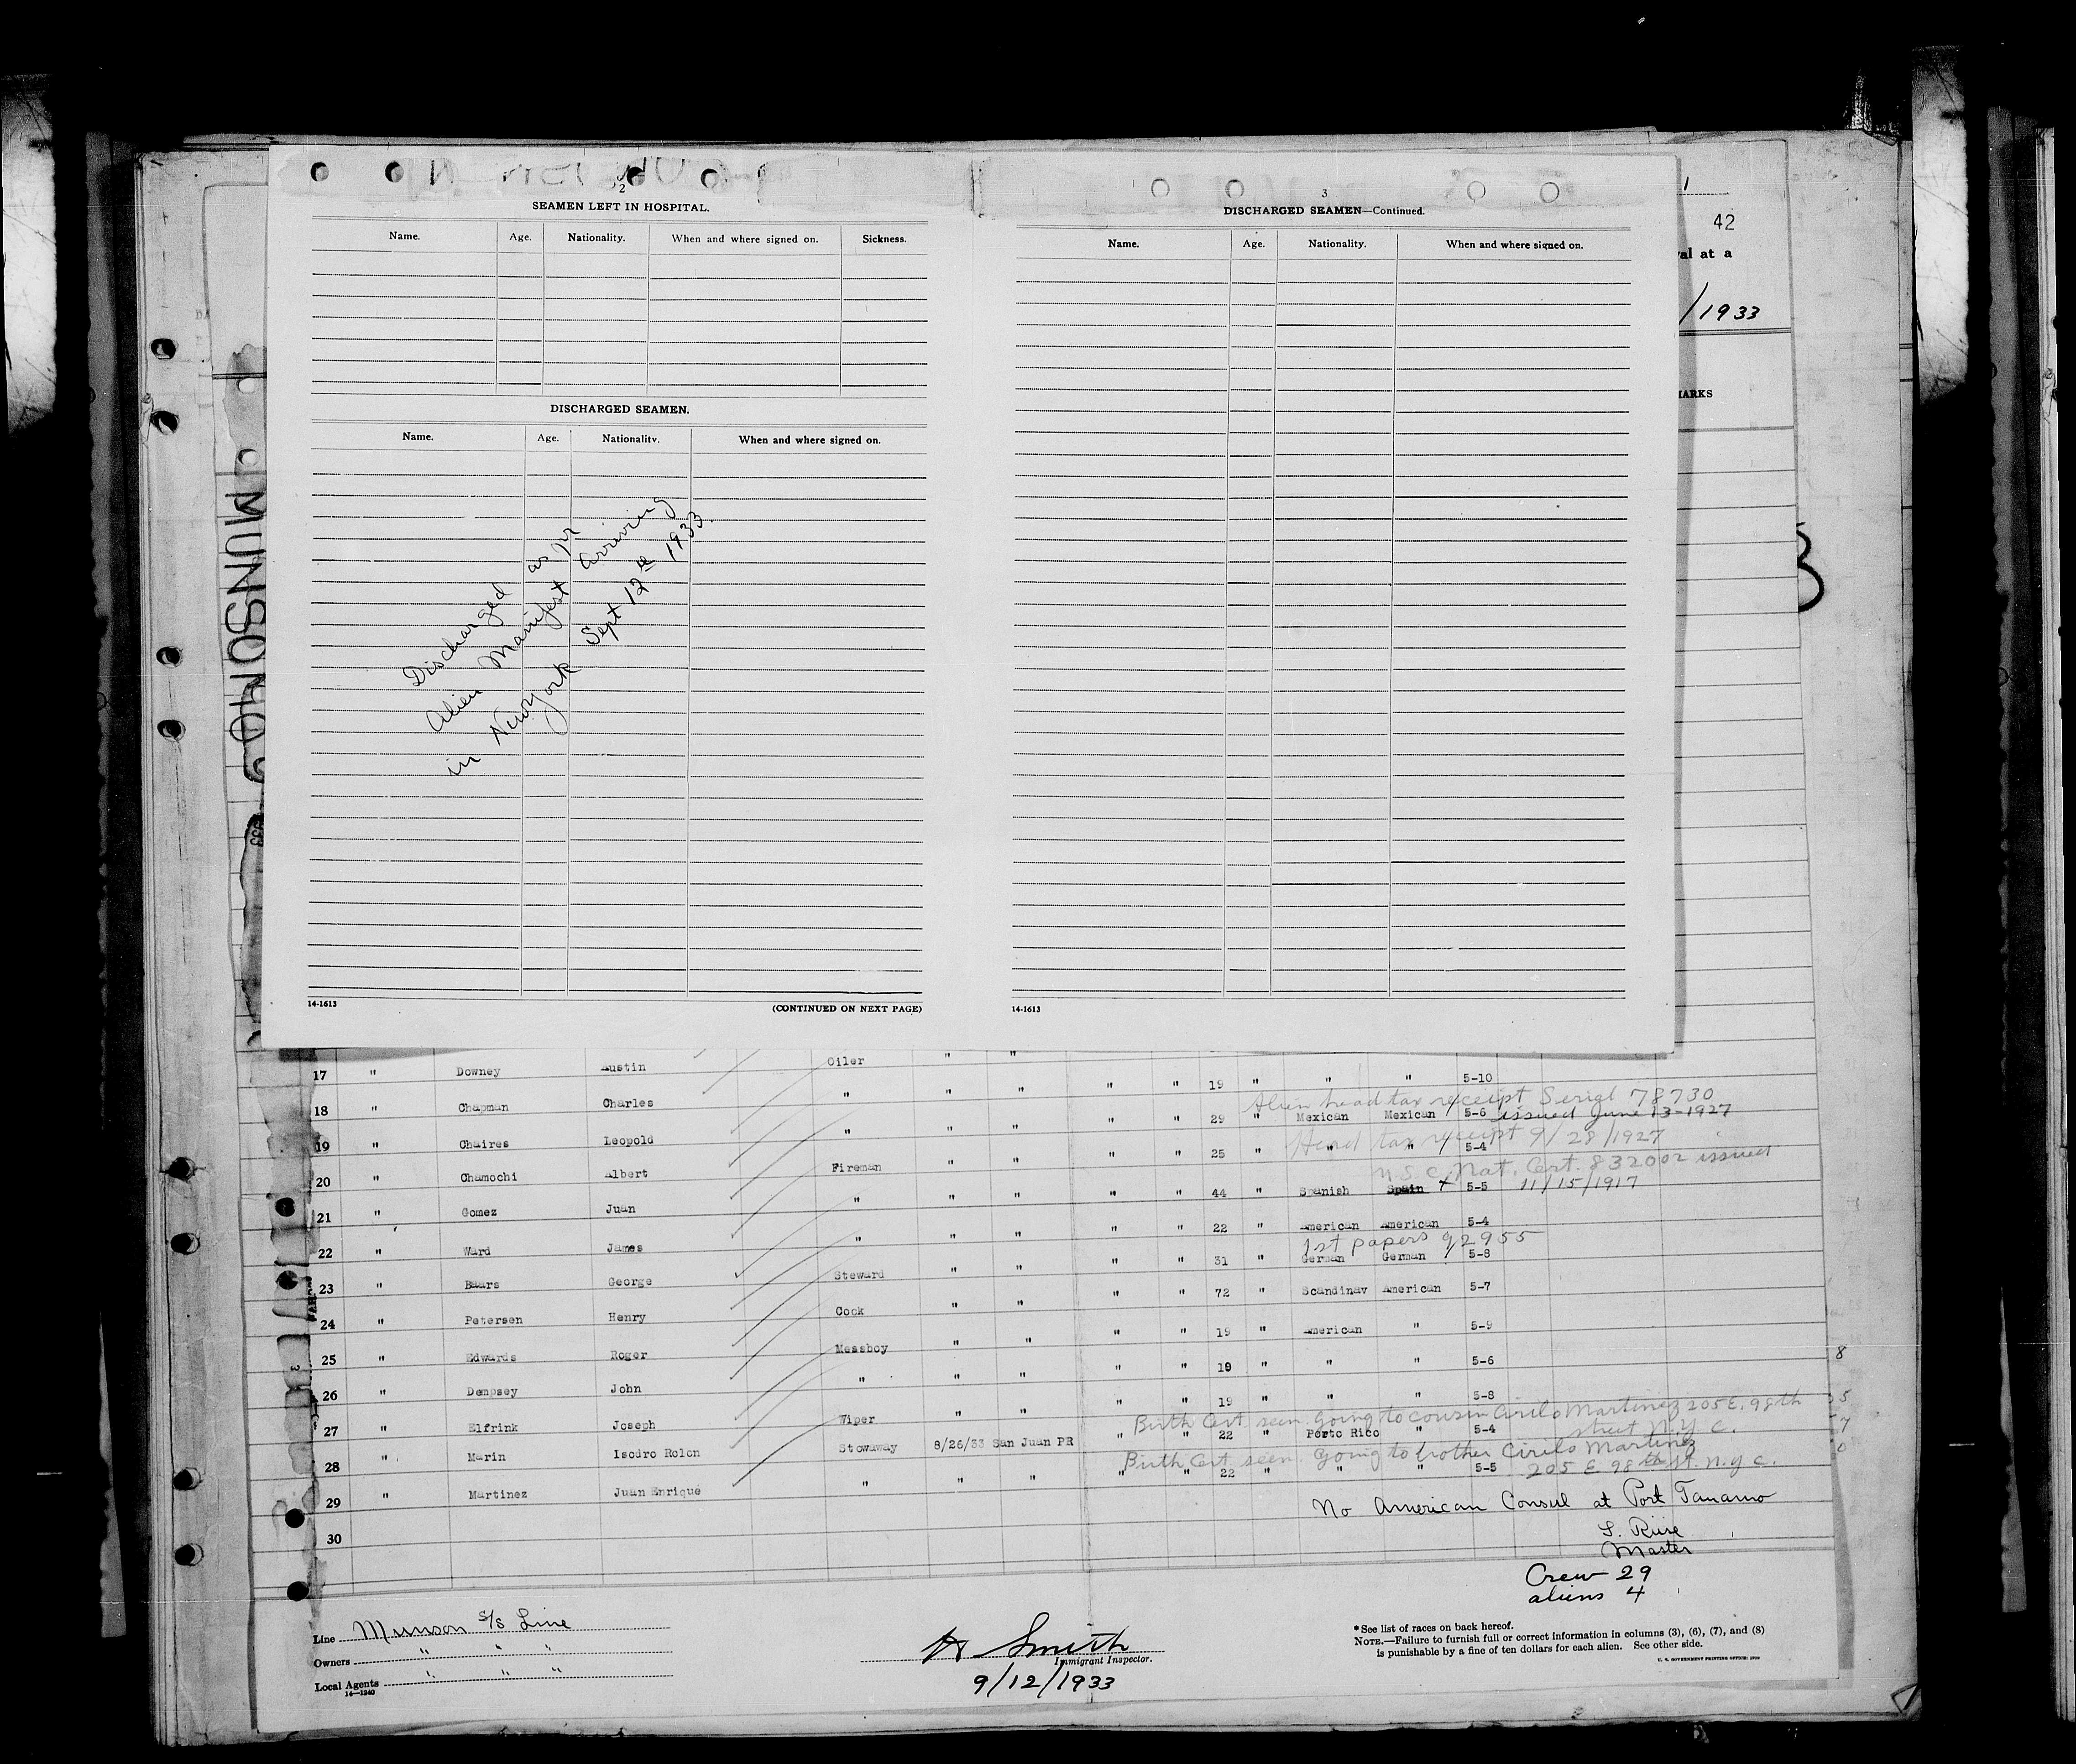 2
SEAMEN LEFT IN HOSPITAL.
Name. Age. Nationality. When and where signed on. Sickness.
DISCHARGED SEAMEN.
Name. Age. Nationality. When and where signed on.
Discharged as pr
Alien Manifest Arriving
in Newyork Sept 12th 1933.
14-1613 (CONTINUED ON NEXT PAGE)
3
DISCHARGED SEAMEN—Continued.
Name. Age. Nationality. When and where signed on.
14-1613
1
42
al at a
/1933
MARKS
MUNSON
17 " Downey Austin Oiler " " " " 19 " " " 5-10
Alien head tax receipt Serial 78730
18 " Chapman Charles " " " " " 29 " Mexican Mexican 5-6 issued June 13-1927
Head tax receipt 9/28/1927
19 " Chaires Leopold " " " " " 25 " " " 5-4
Nat. Cert. 832002 issued
20 " Chamochi Albert Fireman " " " " 44 " Spanish Spain 5-5 11/15/1917
21 " Gomez Juan " " " " " 22 " American American 5-4
1st papers 92955
22 " Ward James " " " " " 31 " German German 5-8
23 " Baars George Steward " " " " 72 " Scandinav American 5-7
24 " Petersen Henry Cook " " " " 19 " American " 5-9
25 " Edwards Roger Messboy " " " " 19 " " " 5-6
26 " Dempsey John " " " " " 19 " " " 5-8
Birth Cert. seen. Going to cousin Cirilo Martinez 205 E. 98th
street N.Y.C.
27 " Elfrink Joseph Wiper " " " " 22 " Porto Rico " 5-4
Birth Cert. seen. Going to brother Cirilo Martinez
205 E 98th St. N.Y.C.
28 " Marin Isodro Rolon Stowaway 8/26/33 San Juan PR " " 22 " " " 5-5
29 " Martinez Juan Enrique " " "
30
No American Consul at Port Tanamo
Master
Crew 29
aliens 4
Line Munson S/S Line
Owners " " "
Local Agents " " "
14—1240
H Smith
Immigrant Inspector.
9/12/1933
*See list of races on back hereof.
NOTE.—Failure to furnish full or correct information in columns (3), (6), (7), and (8)
is punishable by a fine of ten dollars for each alien. See other side.
U. S. GOVERNMENT PRINTING OFFICE